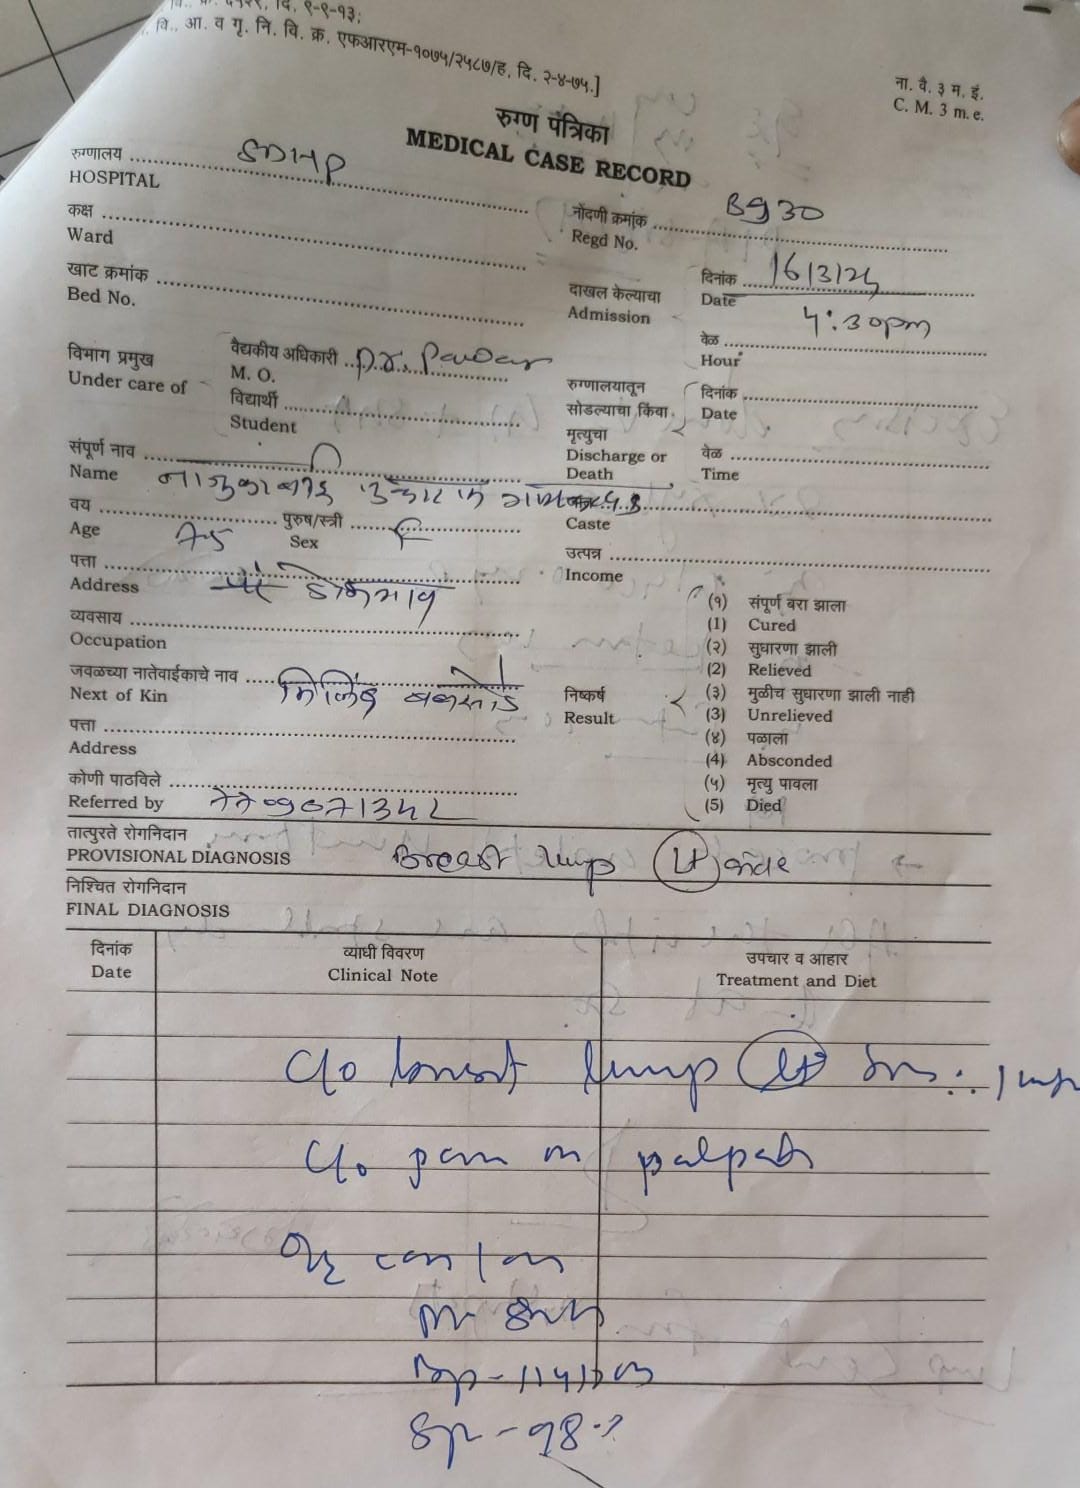 दि. ९-९-१३;
वि., आ. व गृ. नि. वि. क्र. एफआरएम-१०७५/२५८७/ह, दि. २-४-७५.]
ना. वै. ३ म. इं.
C. M. 3 m. e.
रुग्ण पत्रिका
MEDICAL CASE RECORD
रुग्णालय SDHP
HOSPITAL
नोंदणी क्रमांक B930
Regd No.
कक्ष
Ward
खाट क्रमांक
Bed No.
दाखल केल्याचा
Admission
दिनांक 16/3/25
Date
वेळ 4:30pm
Hour
विभाग प्रमुख
Under care of
वैद्यकीय अधिकारी Dr. Pawar
M. O.
विद्यार्थी
Student
रुग्णालयातून
सोडल्याचा किंवा
मृत्युचा
Discharge or
Death
दिनांक
Date
वेळ
Time
संपूर्ण नाव
Name
वय
Age 75
पुरुष/स्त्री
Sex F
Caste
पत्ता
Address
उत्पन्न
Income
व्यवसाय
Occupation
जवळच्या नातेवाईकाचे नाव मिलिंद बनसोडे
Next of Kin
पत्ता
Address
निष्कर्ष
Result
(१) संपूर्ण बरा झाला
(1) Cured
(२) सुधारणा झाली
(2) Relieved
(३) मुळीच सुधारणा झाली नाही
(3) Unrelieved
(४) पळाला
(4) Absconded
(५) मृत्यु पावला
(5) Died
कोणी पाठविले
Referred by
तात्पुरते रोगनिदान
PROVISIONAL DIAGNOSIS Breast lump Lt
निश्चित रोगनिदान
FINAL DIAGNOSIS
दिनांक
Date
व्याधी विवरण
Clinical Note
उपचार व आहार
Treatment and Diet
c/o breast lump Lt
c/o pain on palpatn